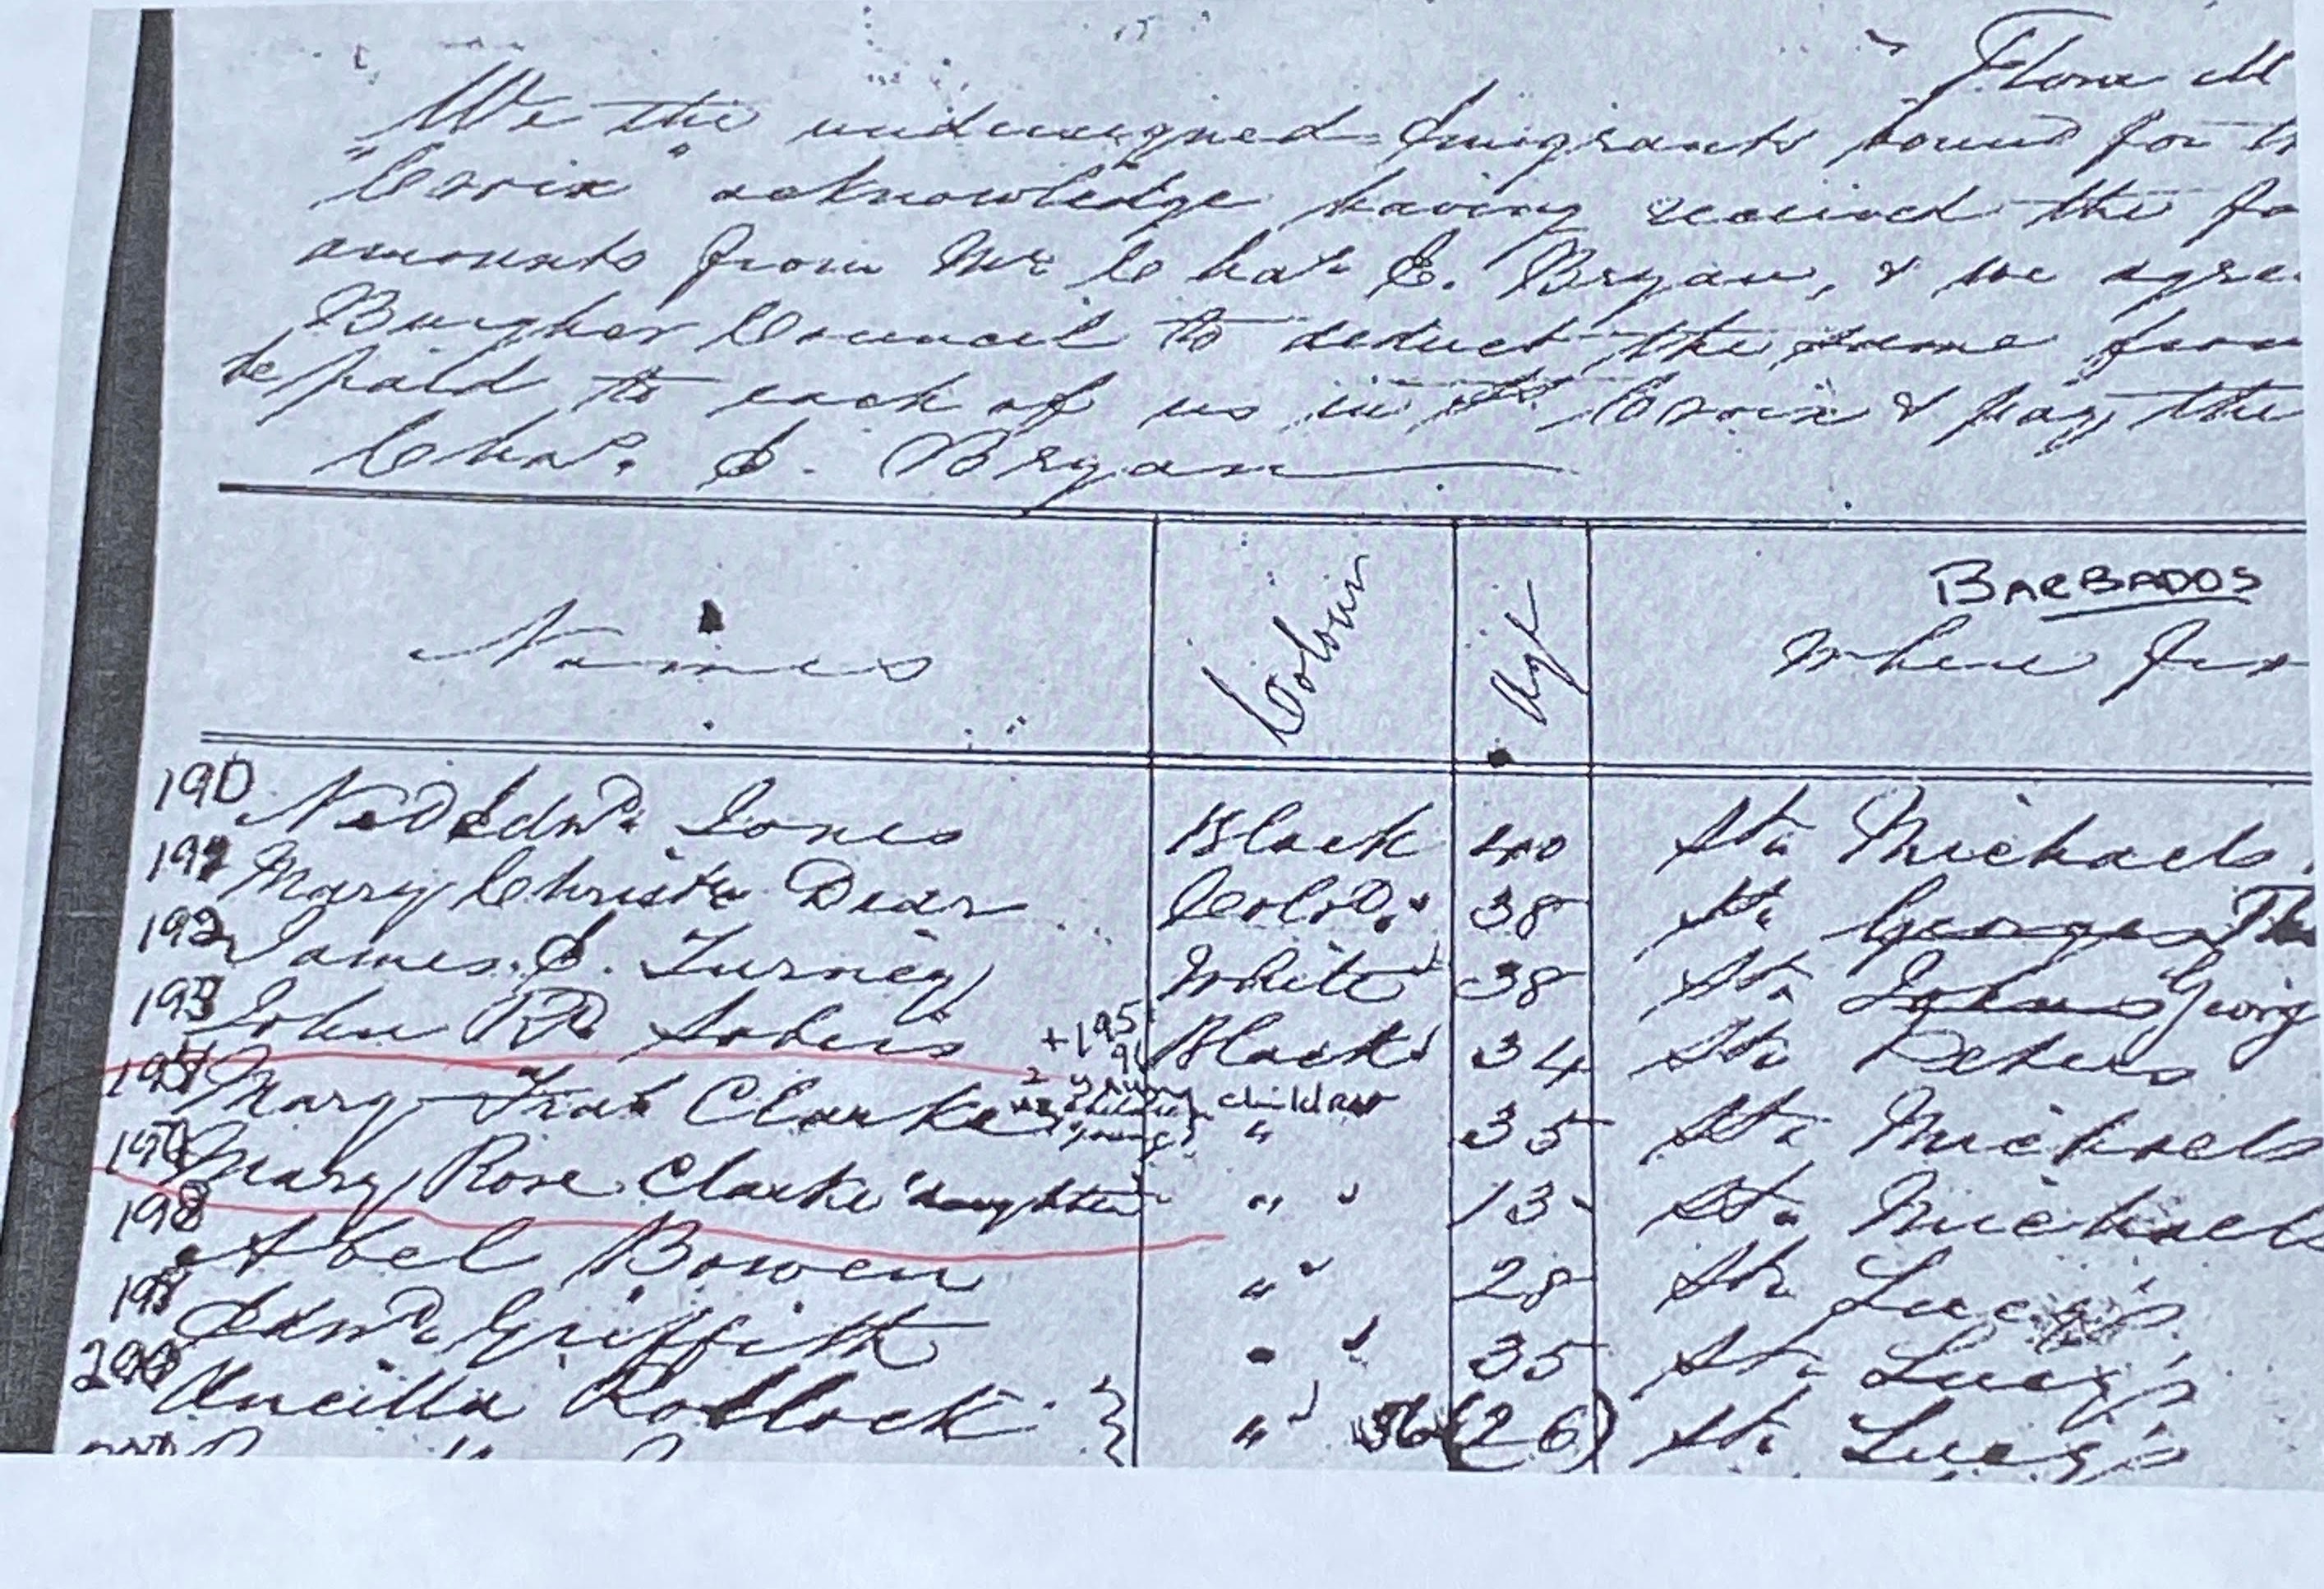 Flora M
We the undersigned Emigrants bound for
"Croix" acknowledge having received the fo
amounts from Mr Chas E. Bryan, & we agre
Burgher Council to deduct the same from
be paid to each of us in St Croix & pay the
Chas. E. Bryan
BARBADOS
Names Colour Age Where from
190 Ned Edwd. Jones Black 40 St. Michaels
191 Mary Christn Dear Colod. 38 St. Georges Tho
192 James. E. Turney White 38 St. Johns Georg
193 John Rd Sobers Black 34 St. Peters
+195
2 young children
194 Mary Clarke " 35 St. Michaels
Mary Rose Clarke "daughter" " 13 St. Michaels
198 Abel Bowen " 28 St. Lucy's
Edwd. Griffith " 35 St. Lucy's
200 Ancilla Rollock " 36 (26) St. Lucy's